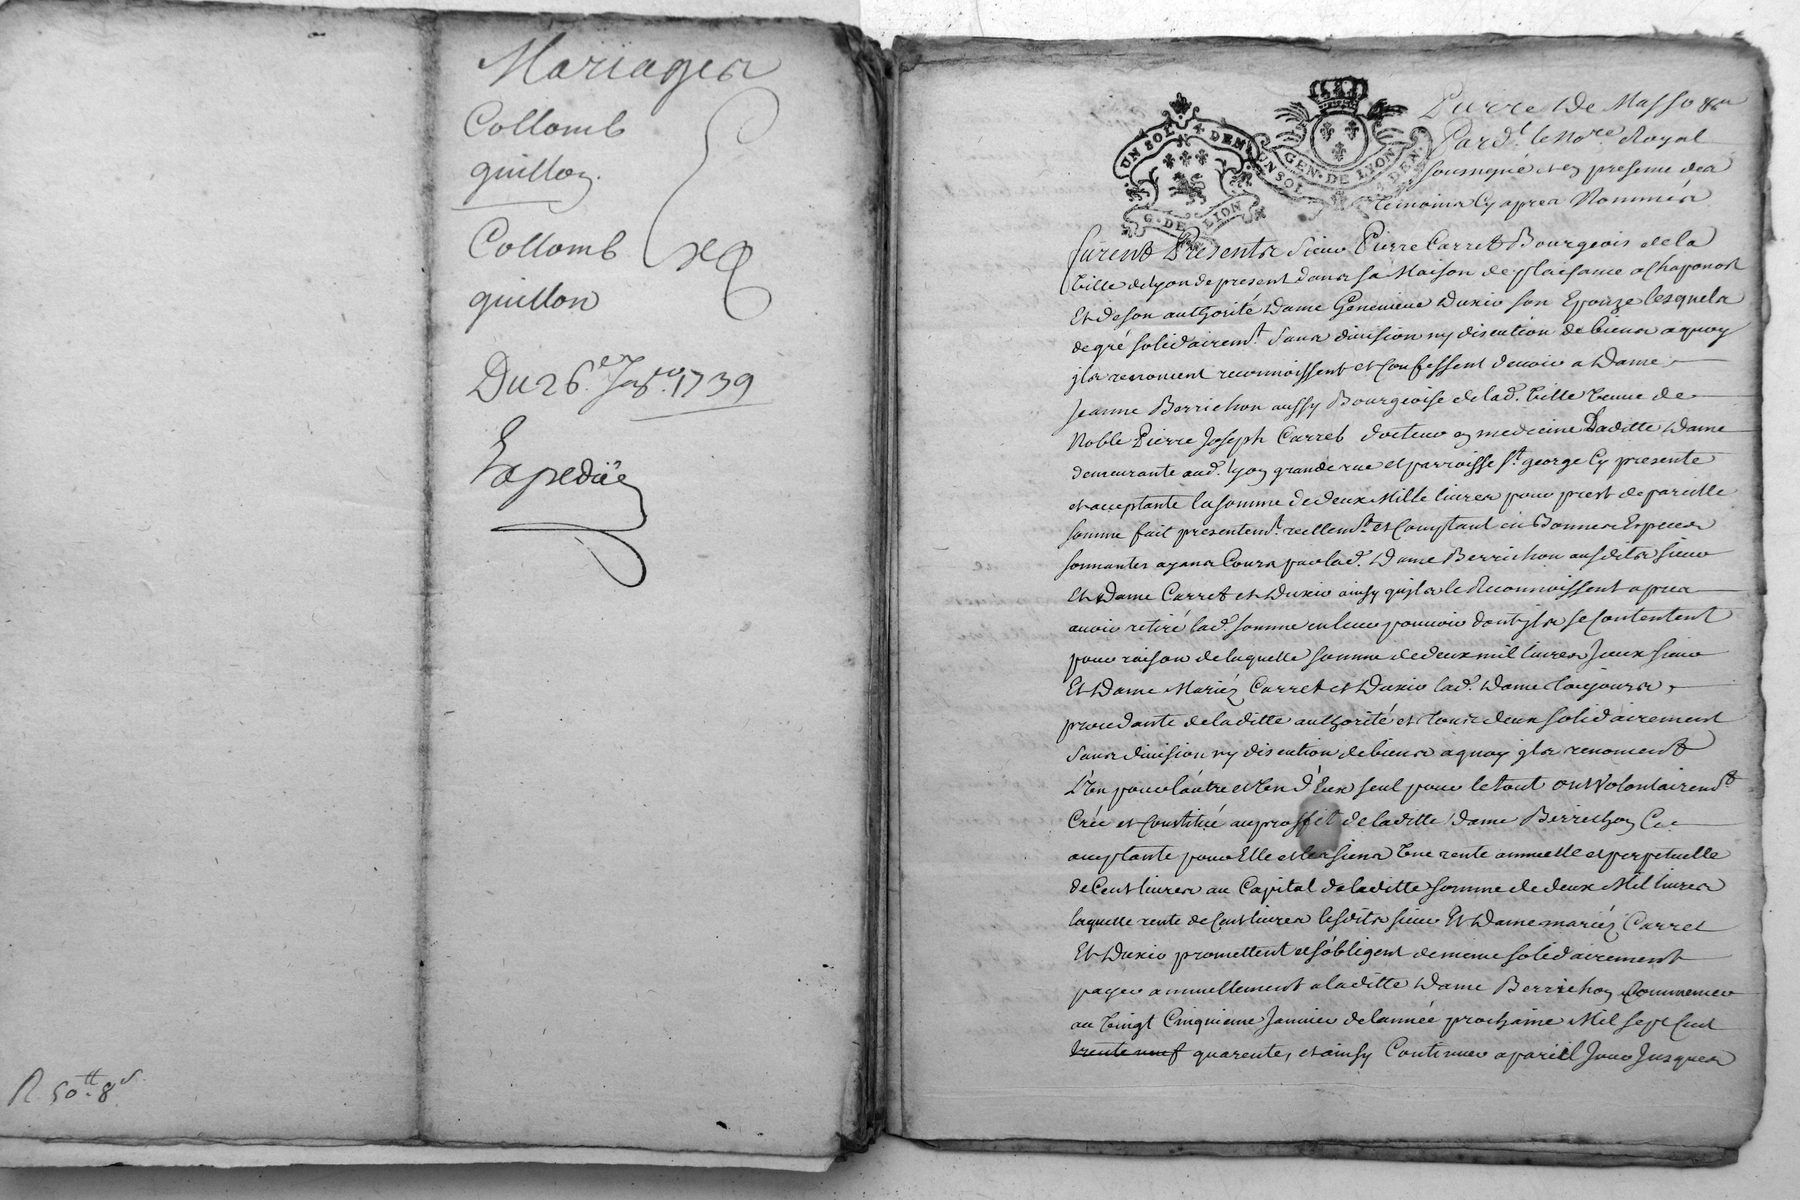 Mariages
Collomb
guillon
Collomb
guillon
Du 26.e Janv.er 1739
Expediée
R 50tt 8s
UN SOL 4 DEN.
G. DE LION
UN SOL 4 DEN.
GEN. DE LYON
Pierre De Masso &a
Pard.t le No.re Royal
soussigné et en presence des
temoins cy apres Nommés
furent Presents Sieur Pierre Carret Bourgeois de la
Ville de lyon de present dans sa Maison de plaisance a Chaponost
Et de son authorité Dame Genevieve son Epouze lesquels
de gré solidairem.t sans division ny discution de biens a quoy
jls renoncent reconnoissent et Confessent devoir a Dame
Jeanne Berrichon aussy Bourgeoise de lad. Ville Veuve de
Noble Pierre Joseph Carret docteur en medecine Laditte Dame
demeurante aud. lyon grande rue et parroisse St. george Cy presente
et acceptante la somme de deux Mille livres pour prest de pareille
somme fait presentem.t reellem.t et Comptant en Bonnes Especes
sonnantes ayans Cours par lad. Dame Berrichon ausdits sieur
et Dame Carret et ainsy qu'jls le Reconnoissent apres
avoir retiré lad. somme en leur pouvoir dont jls se Contentent
pour raison de laquelle somme de deux mil livres Jceux sieur
Et Dame Mariéz Carret et lad. Dame toujours
procedante de laditte authorité et tous deux solidairement
sans division ny discution de biens a quoy jls renoncent
L'Vn pour l'autre et Vn d'Eux seul pour le tout ont Volontairem.t
Créé et Constitué au proffit de laditte Dame Berrichon Ce
acceptante pour Elle et les siens Vne rente annuelle et perpetuelle
de Cent livres au Capital de laditte somme de deux Mil livres
laquelle rente de Cent livres lesdits sieur Et Dame mariéz Carret
Et promettent et s'obligent de meme solidairement
payer annuellement a laditte Dame Berrichon Commencer
au Vingt Cinquieme Janvier de l'année prochaine Mil sept Cent
trente neuf quarente, et ainsy Continuer a pareil Jour Jusques